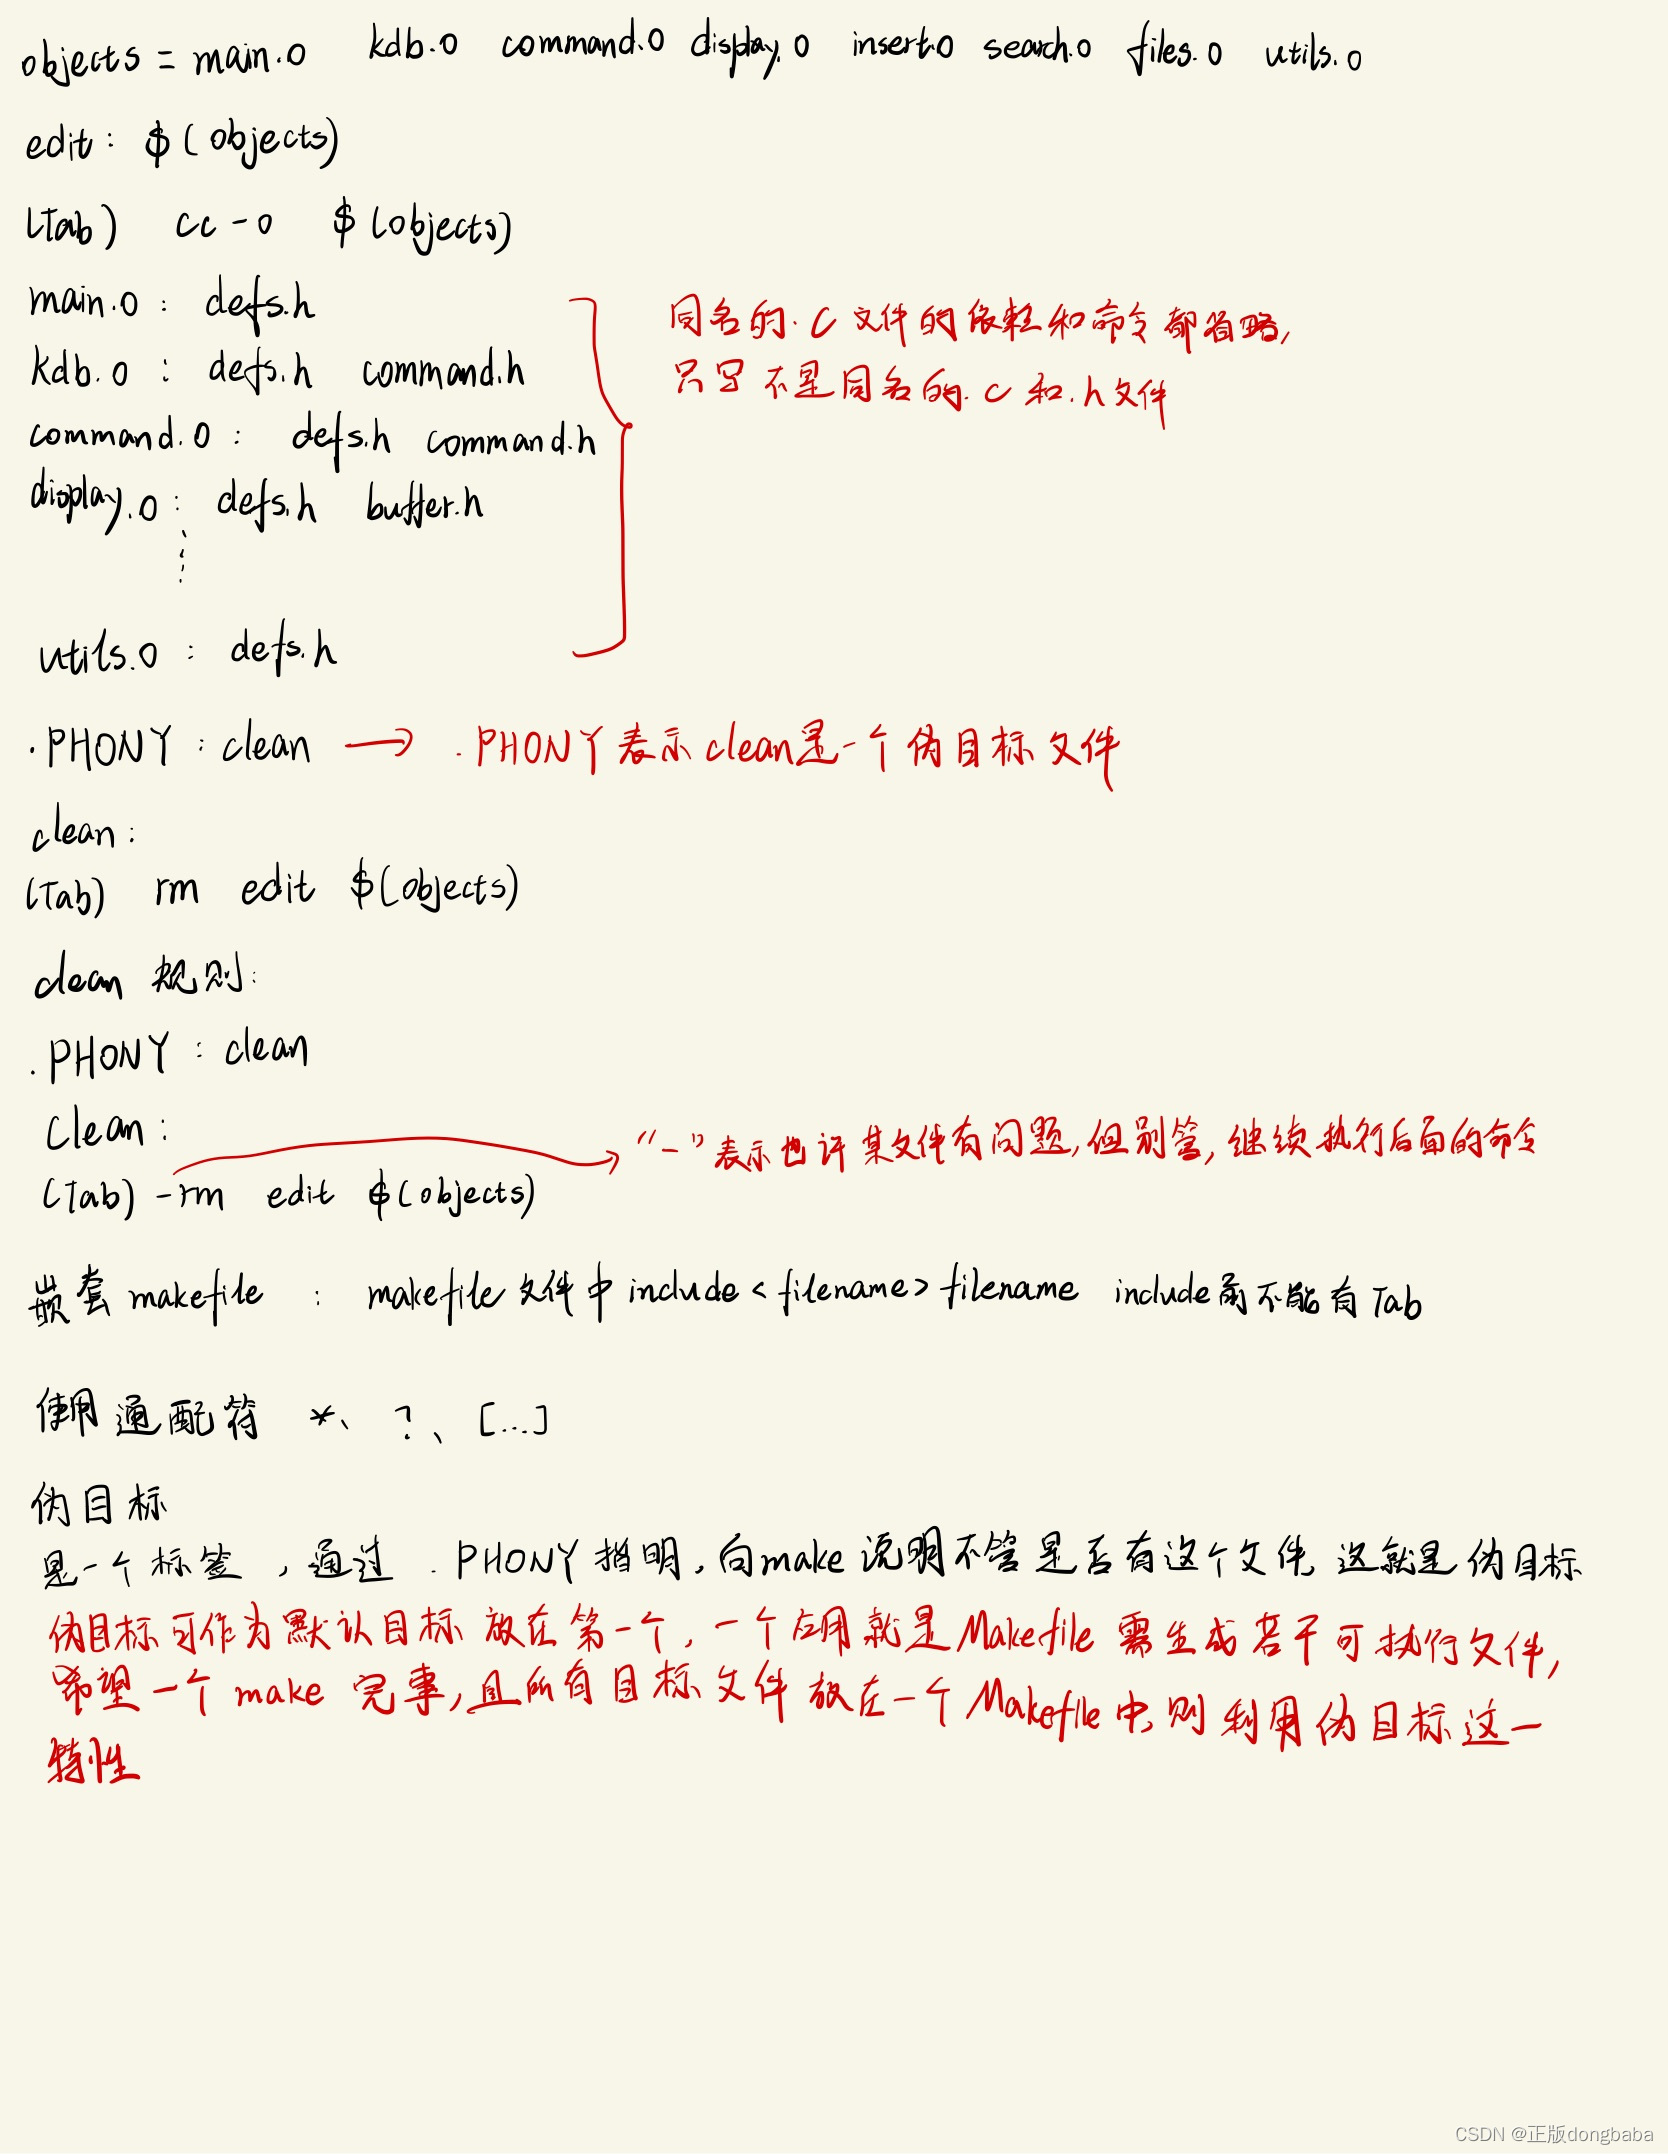 objects = main.o kdb.o command.o display.o insert.o search.o files.o utils.o
edit: $(objects)
(Tab) cc -o $(objects)
main.o : defs.h
kdb.o : defs.h command.h
command.o : defs.h command.h
display.o : defs.h buffer.h
......
utils.o : defs.h
同名的.c文件的依赖和命令都省略,
只写不是同名的.c和.h文件
.PHONY : clean → .PHONY表示clean是一个伪目标文件
clean:
(Tab) rm edit $(objects)
clean 规则:
.PHONY : clean
clean:
(Tab) -rm edit $(objects)
"-"表示也许某文件有问题,但别管,继续执行后面的命令
嵌套makefile : makefile文件中include<filename>filename include前不能有Tab
使用通配符 *、?、[...]
伪目标
是一个标签,通过.PHONY指明,向make说明不管是否有这个文件,这就是伪目标
伪目标可作为默认目标放在第一个,一个应用就是Makefile需生成若干可执行文件,
希望一个make完事,且所有目标文件放在一个Makefile中,则利用伪目标这一
特性
CSDN @正版dongbaba